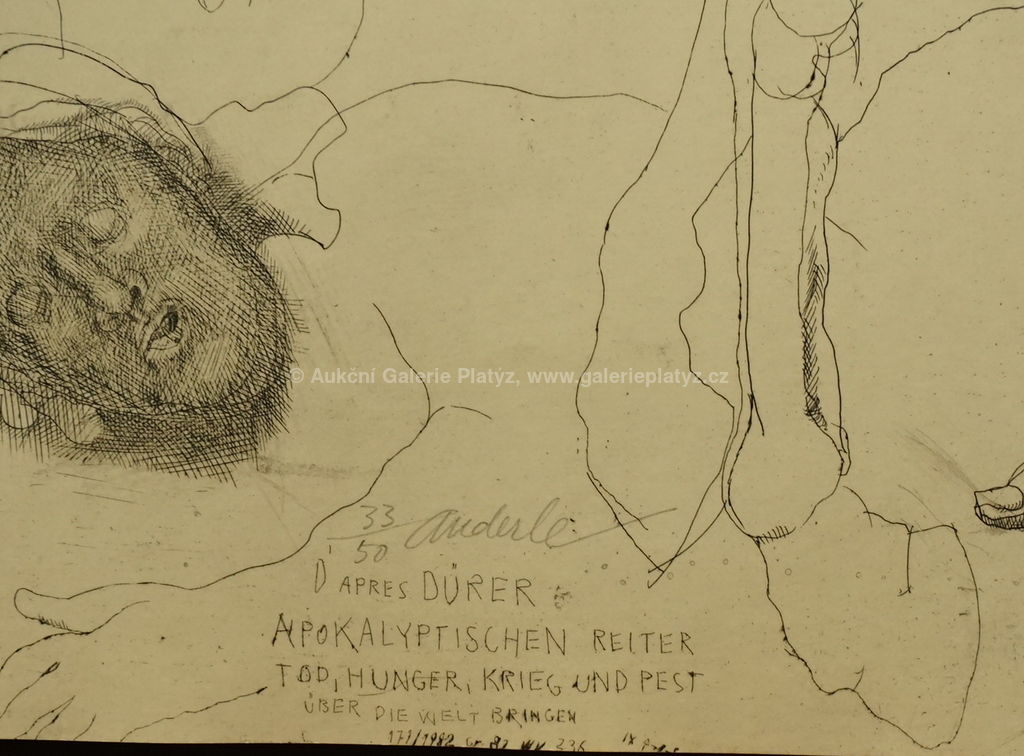 © Aukční Galerie Platýz, www.galerieplatyz.cz
33/50 Anderle
D'APRES DÜRER
APOKALYPTISCHEN REITER
TOD, HUNGER, KRIEG UND PEST
ÜBER DIE WELT BRINGEN
171/1982